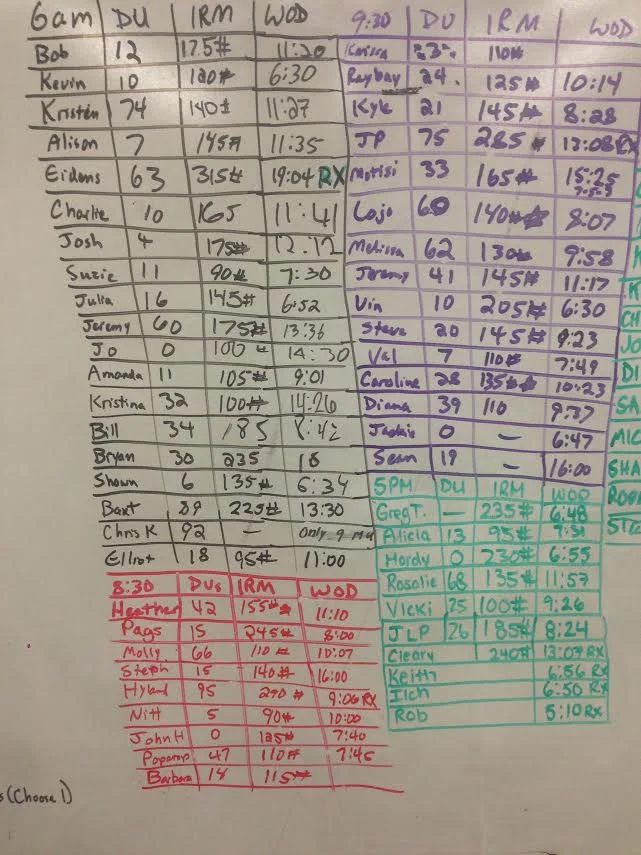 6am DU 1RM WOD
Bob 12 175# 11:20
Kevin 10 120# 6:30
Kristen 74 140# 11:27
Alison 7 145# 11:35
Eidens 63 315# 19:04 RX
Charlie 10 165 11:41
Josh 4 175# 12:12
Suzie 11 90# 7:30
Julia 16 145# 6:52
Jeremy 60 175# 13:36
Jo 0 100 # 14:30
Amanda 11 105# 9:01
Kristina 32 100# 14:26
Bill 34 185 8:42
Bryan 30 235 18
Shawn 6 135# 6:34
Baxt 89 225# 13:30
Chris K 92 — only 9 mu
Elliot 18 95# 11:00
8:30 DUs 1RM WOD
Heather 42 155# 11:10
Pags 15 245# 8:00
Molly 66 110 # 10:07
Steph 15 140# 16:00
Hyland 95 290 # 9:06 RX
Nitt 5 90# 10:00
John H 0 125# 7:40
47 110# 7:45
Barbara 14 115#
s (Choose 1)
9:30 DU 1RM WOD
110#
Raybay 24. 125# 10:14
Kyle 21 145# 8:28
JP 75 285 # 13:08 RX
33 165# 15:25
Lojo 140# 8:07
Melissa 62 130# 9:58
Jeremy 41 145# 11:17
Vin 10 205# 6:30
Steve 20 145# 9:23
Val 7 110# 7:49
Caroline 28 135# 10:23
Diana 39 110 9:37
Jackie 0 — 6:47
Sean 19 — 16:00
5PM DU 1RM WOD
Greg T. — 235# 6:48
Alicia 13 95# 7:31
Hordy 0 230# 6:55
Rosalie 68 135# 11:57
Vicki 75 100# 9:26
JLP 26 185# 8:24
Cleary 240# 13:07 RX
Keith 6:56 RX
Ilch 6:50 RX
Rob 5:10 RX
K
CH
JO
DI
SA
MIC
SHA
ROB
STE